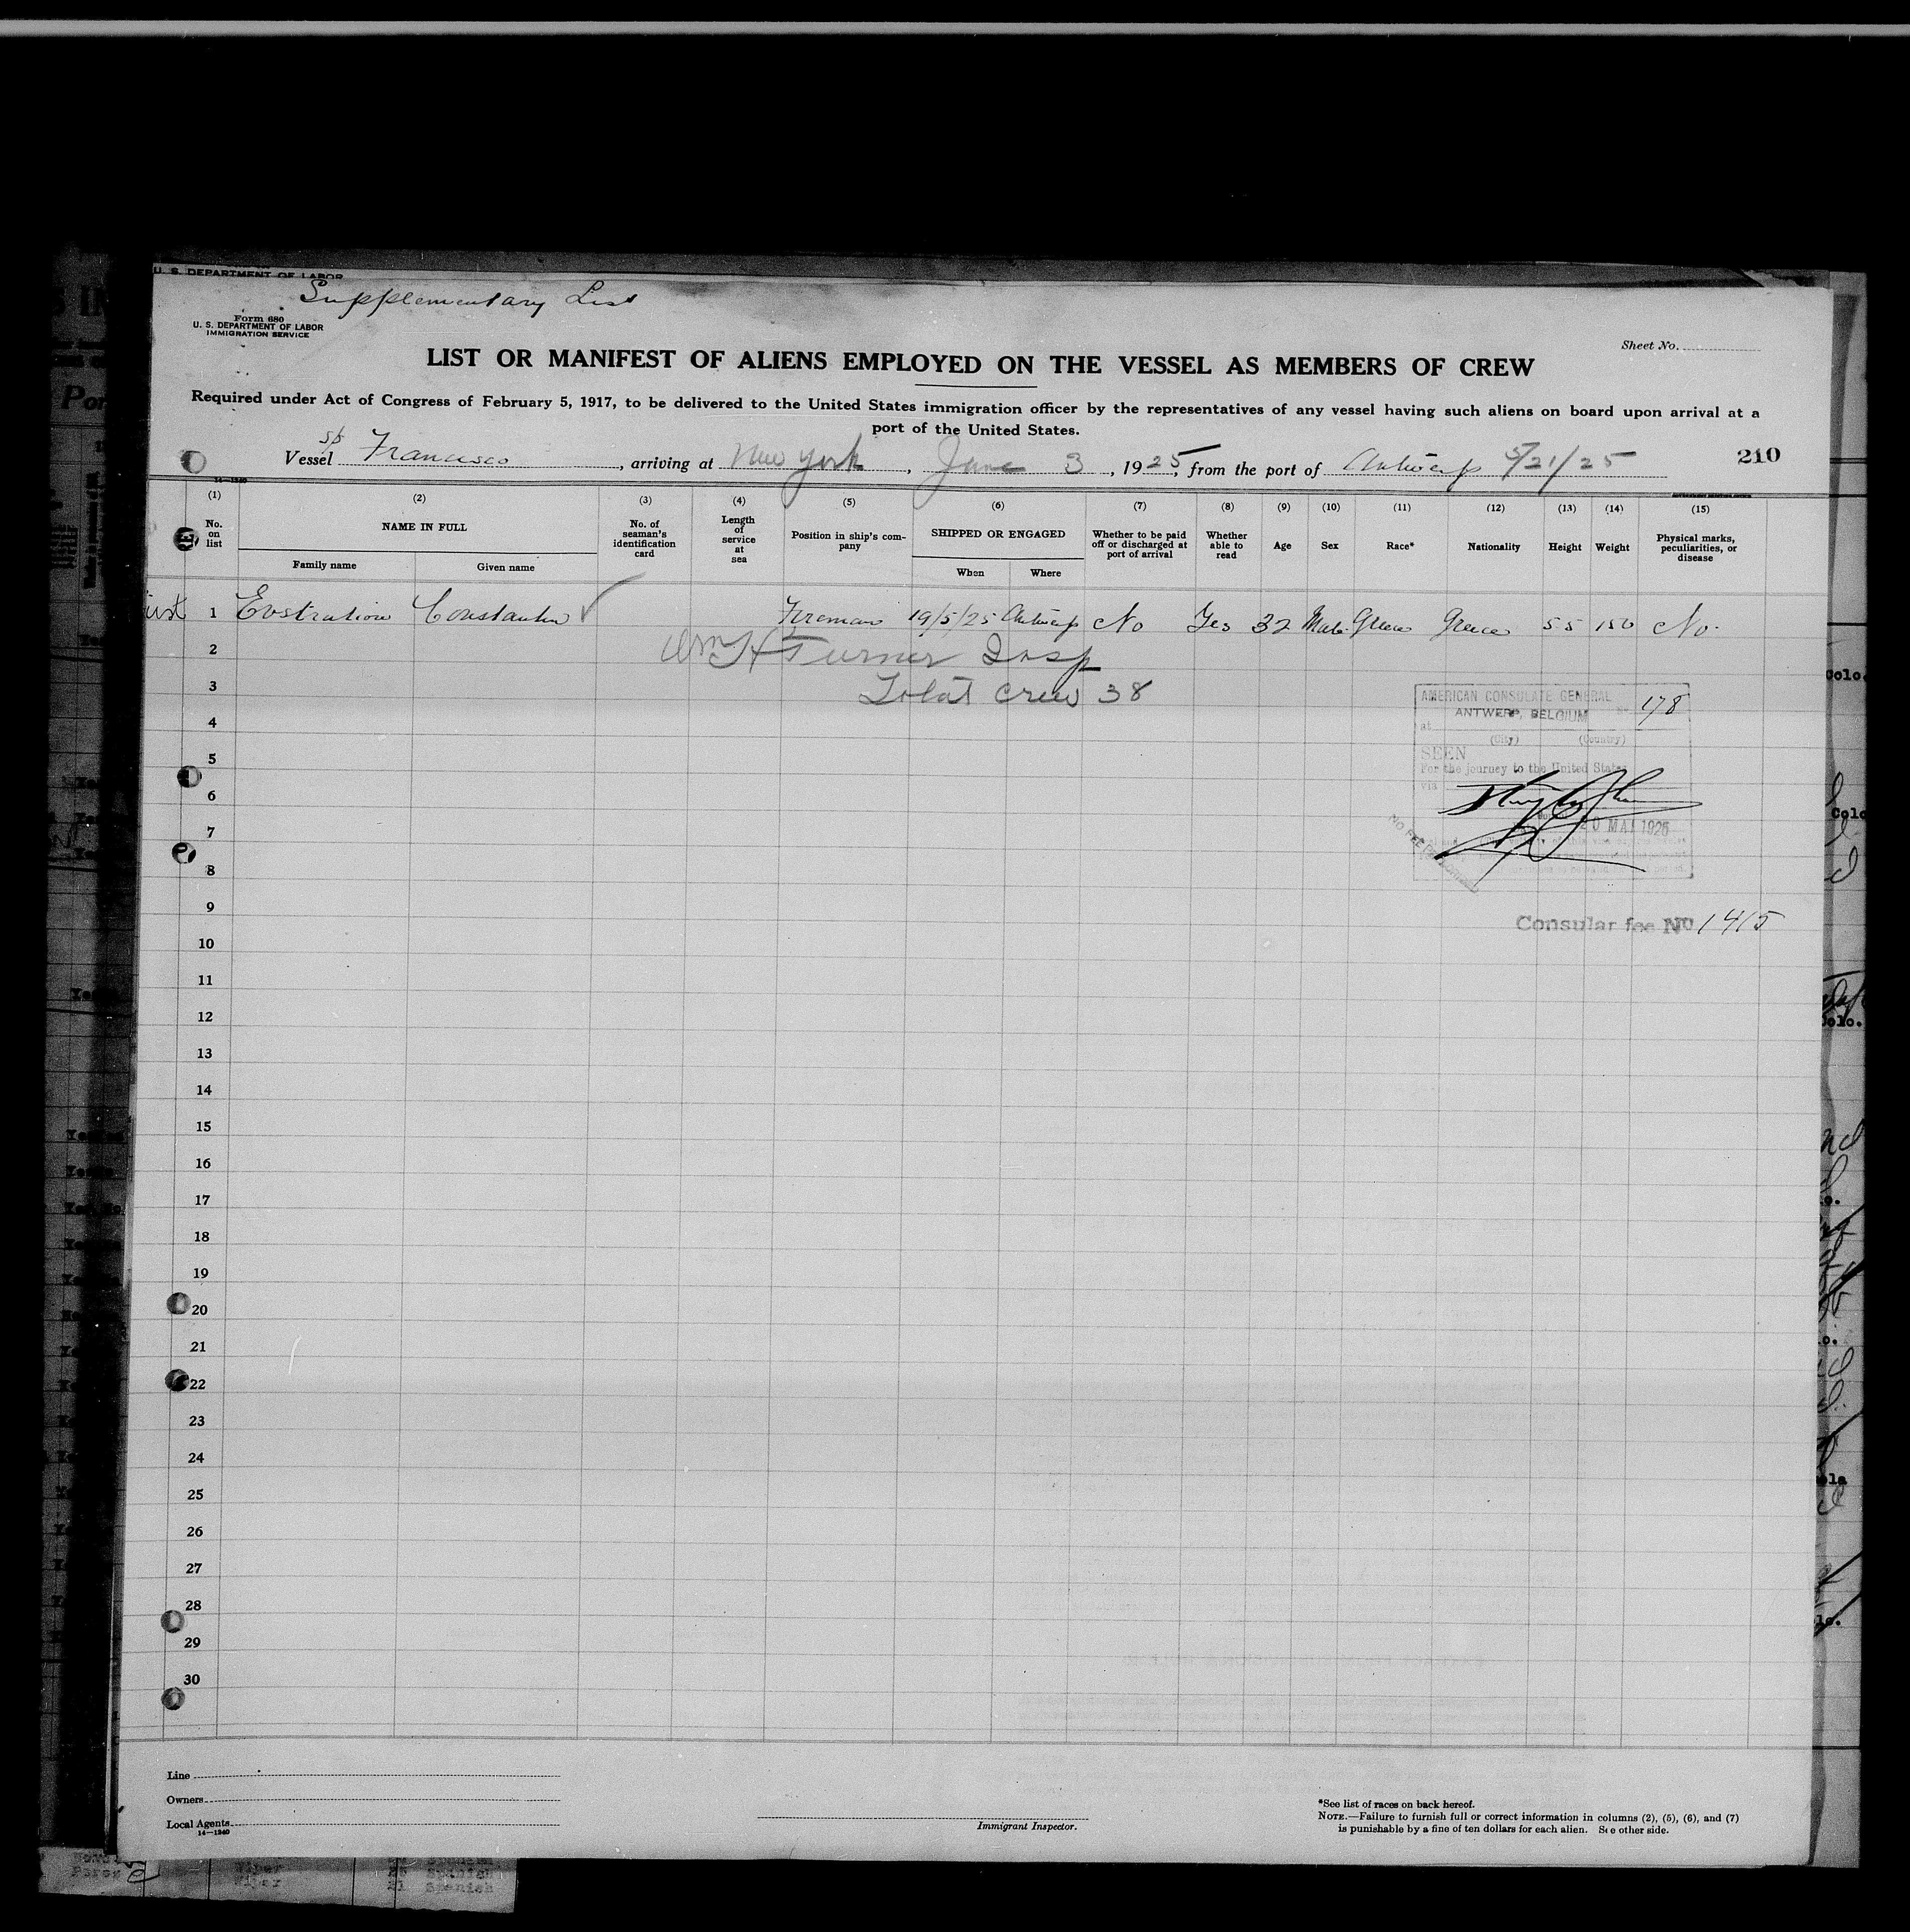 U. S. DEPARTMENT OF LABOR
Supplementary List
Form 680
U. S. DEPARTMENT OF LABOR
IMMIGRATION SERVICE
Sheet No.
LIST OR MANIFEST OF ALIENS EMPLOYED ON THE VESSEL AS MEMBERS OF CREW
Required under Act of Congress of February 5, 1917, to be delivered to the United States immigration officer by the representatives of any vessel having such aliens on board upon arrival at a
port of the United States.
Vessel Francisco, arriving at New York, June 3, 1925, from the port of Antwerp 5/21/25 210
14—1240
(1) (2) (3) (4) (5) (6) (7) (8) (9) (10) (11) (12) (13) (14) (15)
No. on list
NAME IN FULL
Family name Given name
No. of seaman's identification card
Length of service at sea
Position in ship's company
SHIPPED OR ENGAGED
When Where
Whether to be paid off or discharged at port of arrival
Whether able to read
Age
Sex
Race*
Nationality
Height
Weight
Physical marks, peculiarities, or disease
1 Evstration Constantin ✓ Fireman 19/5/25 Antwerp No Yes 32 Male Greece Greece 5 5 150 No.
2 Wm H Turner Insp
3 Total Crew 38
AMERICAN CONSULATE GENERAL 178
at ANTWERP, BELGIUM
(City) (Country)
4
5
SEEN
For the journey to the United States
via
6
7
8
9
Consular fee No 1415
10
11
12
13
14
15
16
17
18
19
20
21
22
23
24
25
26
27
28
29
30
Line
Owners
Local Agents
14—1240
Immigrant Inspector.
*See list of races on back hereof.
NOTE.—Failure to furnish full or correct information in columns (2), (5), (6), and (7)
is punishable by a fine of ten dollars for each alien. See other side.
Wiper Spanish
Wiper Spanish